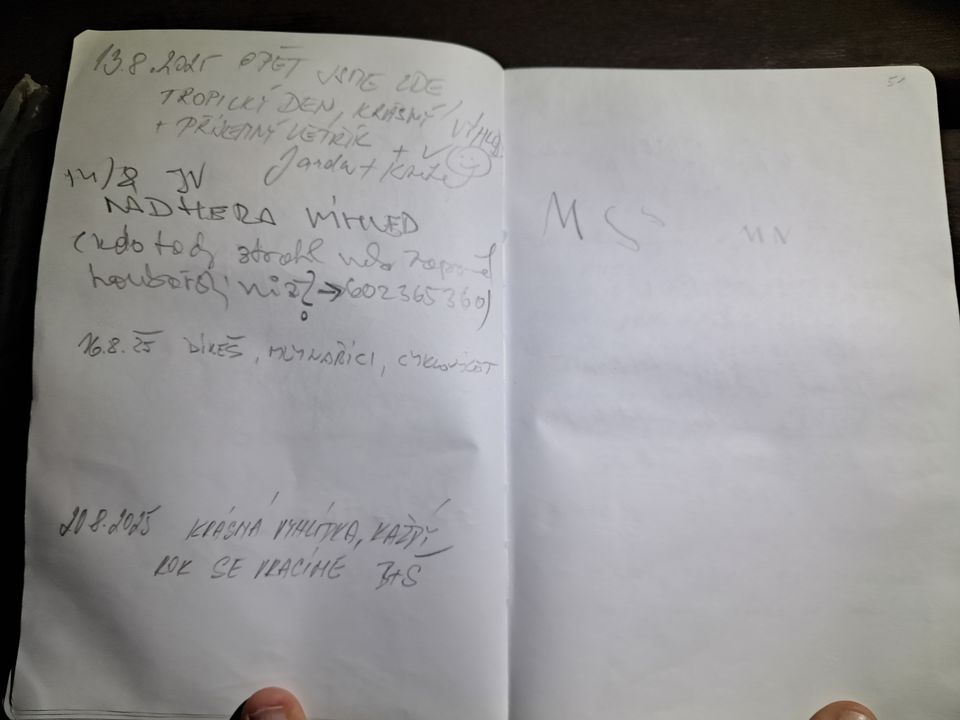 13.8.2025 OPĚT JSME ZDE
TROPICKÝ DEN, KRÁSNÝ VÝHLED
+ PŘÍJEMNÝ VĚTŘÍK
Jarda +
14/8 JV
NÁDHERA VÍHLED
(kdo tady ztratil nebo zapomněl
houbařský nůž? → 602365360)
16.8. 25 DIREŠ, MLYNAŘÍCI, CYKLOVÝLET
20.8.2025 KRÁSNÁ VYHLÍDKA, KAŽDÝ
ROK SE VRACÍME B+Š
51
M S